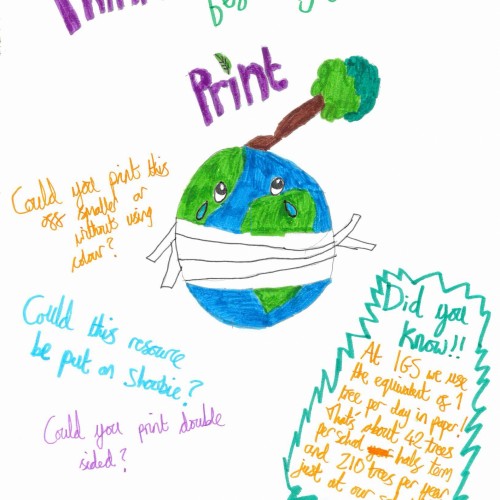 Print
Could you print this
off smaller or
without using
colour?
Could this resource
be put on Showbie?
Could you print double
sided?
Did you
know!!
At IGS we use
the equivalent of 1
tree per day in paper!
That's about 42 trees
per school half term
and 210 trees per year
just at our